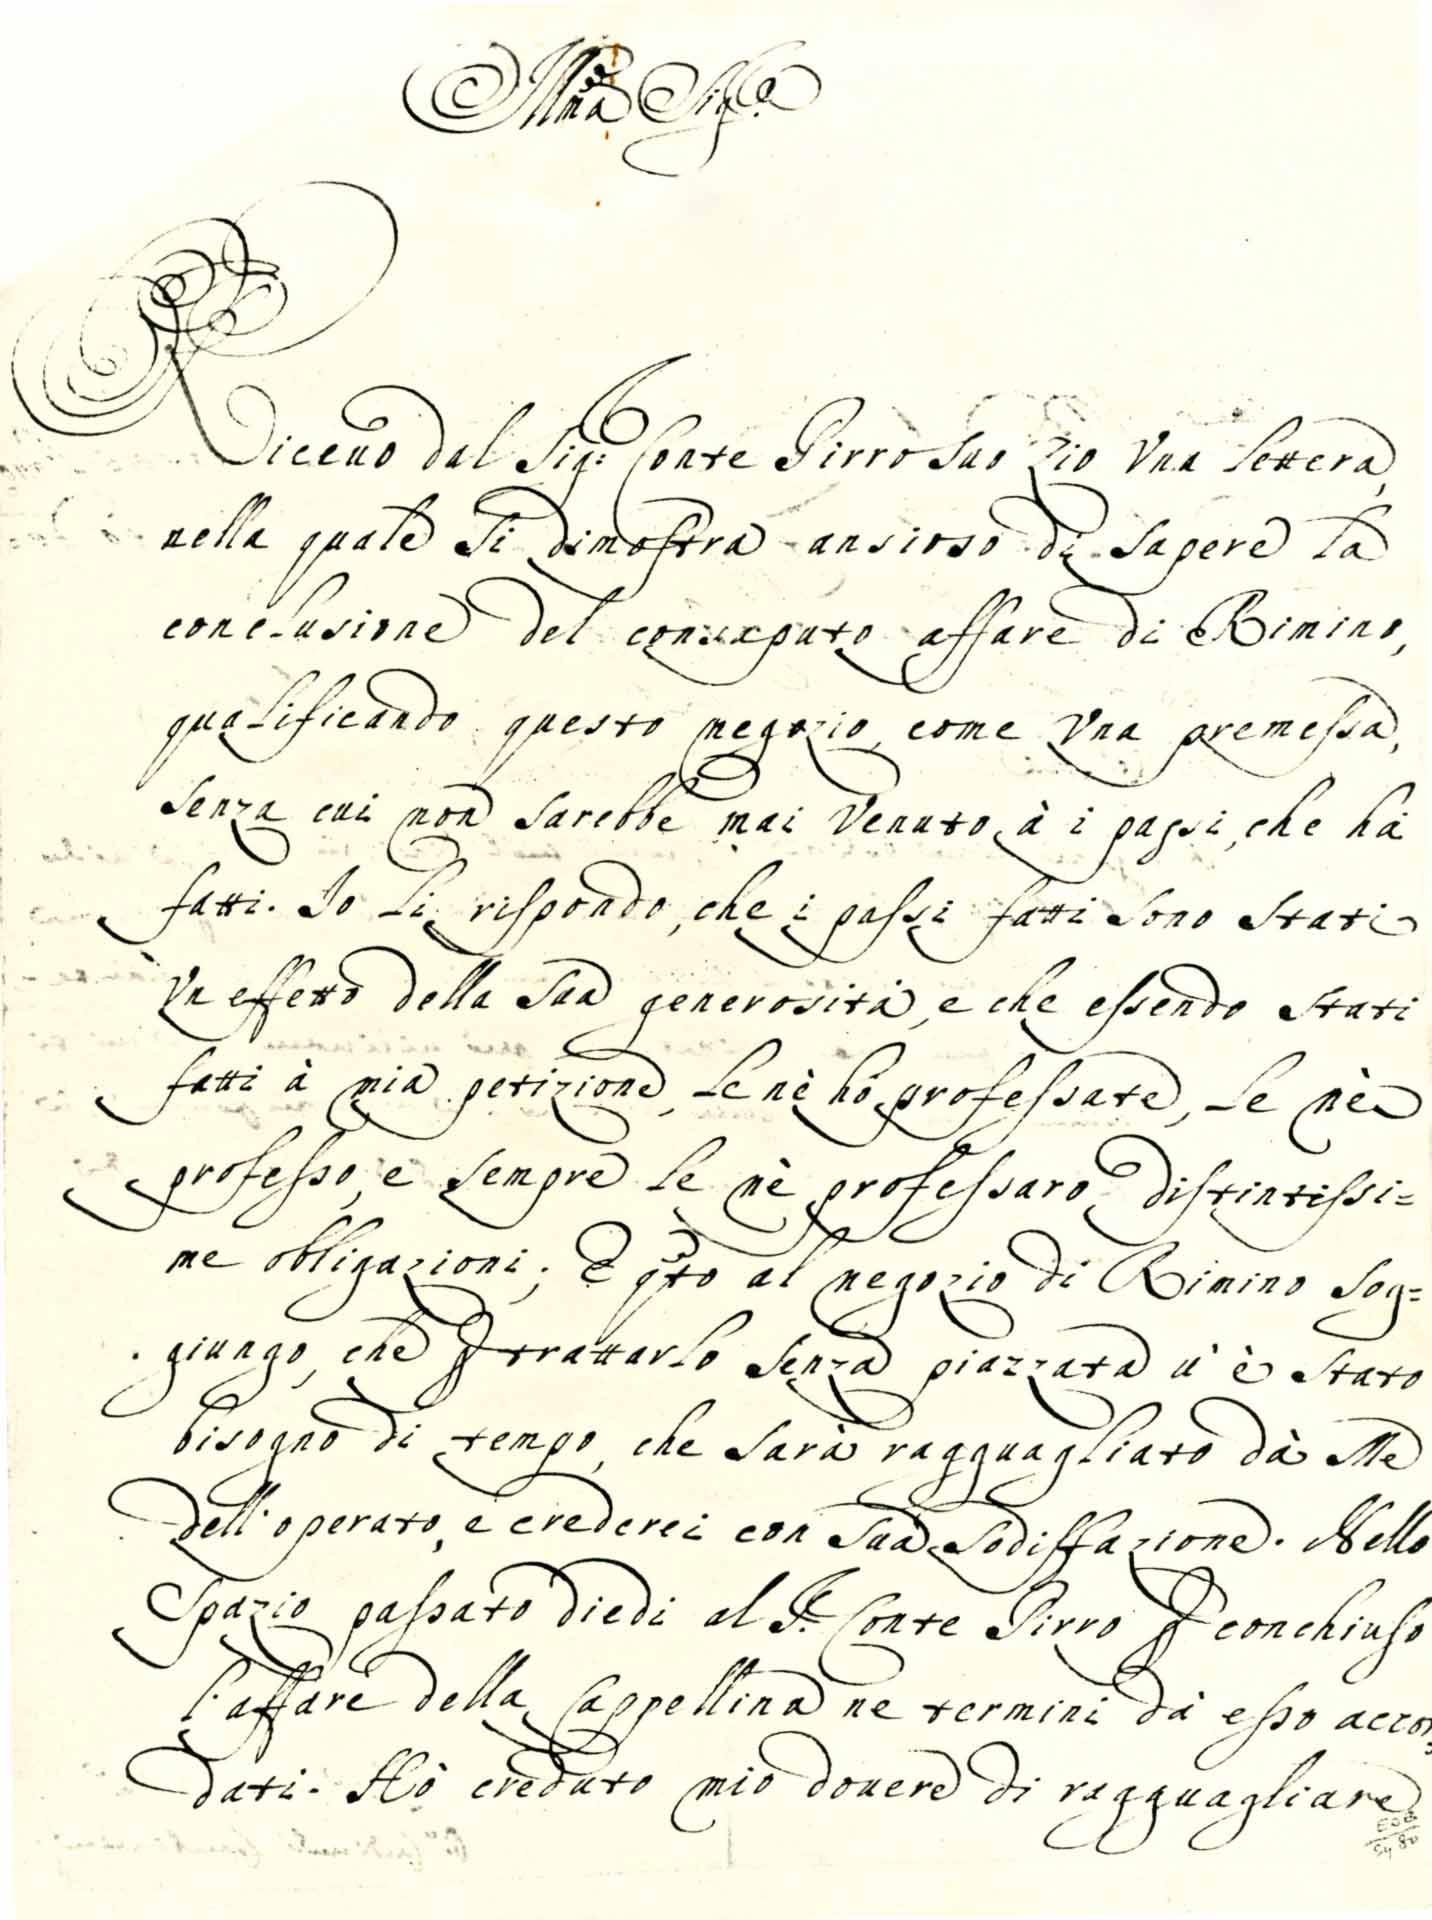 Illma Sig.a
Riceuo dal Sig: Conte Pirro suo Zio Vna Lettera,
nella quale si dimostra ansioso di sapere la
conclusione del consaputo affare di Rimino,
qualificando questo negozio, come Vna premessa,
senza cui non sarebbe mai Venuto à i passi, che hà
fatti. Io li rispondo, che i passi fatti sono stati
Vn effetto della sua generosità, e che essendo stati
fatti à mia petizione, Le nè hò professate, Le nè
professo, e sempre Le nè professaro distintissi=
me obligazioni; E qto al negozio di Rimino sog=
giungo, che ꝑ trattarlo senza piazzata u' è stato
bisogno di tempo, che sarà ragguagliato dà Me
dell' operato, e crederei con sua sodisfazione. Nello
spazio passato diedi al Sr. Conte Pirro ꝑ conchiuso
l'affare della Cappellina ne termini dà esso accor,
dati. Hò creduto mio douere di ragguagliare